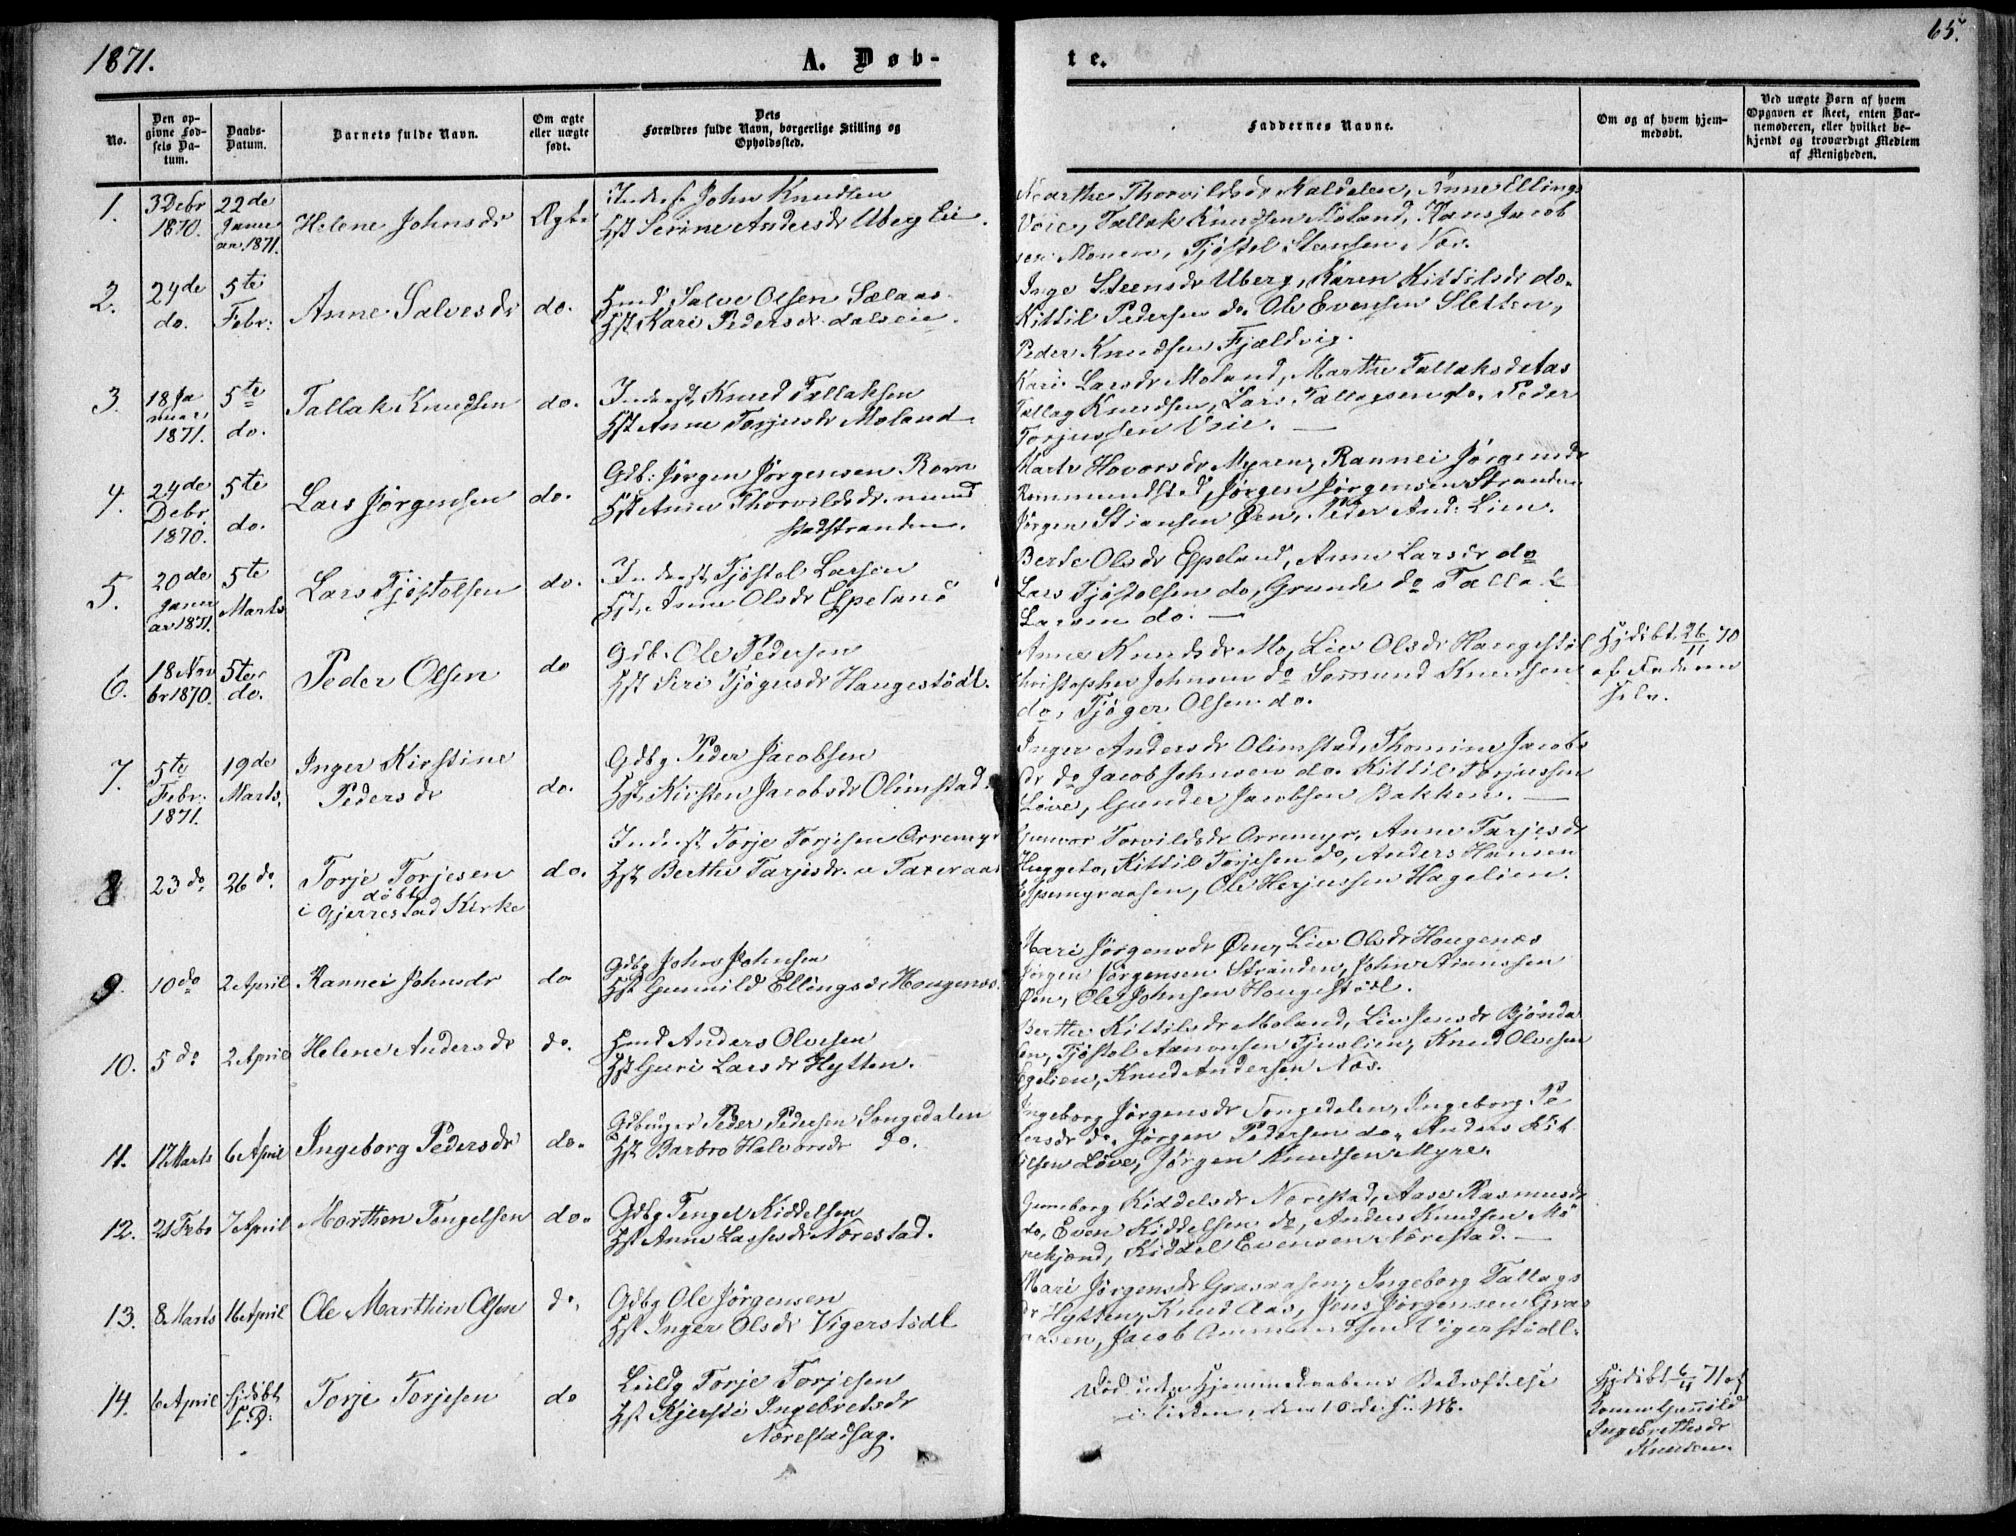 1871.
A. Døb-
te.
65.
No.
Den op-
givne Fød-
sels Da-
tum.
Daabs-
Datum.
Barnets fulde Navn.
Om ægte
eller uægte
født.
Dets
Forældres fulde Navn, borgerlige Stilling og
Opholdssted.
Faddernes Navne.
Om og af hvem hjem-
medøbt.
Ved uægte Børn af hvem
Opgaven er skeet, enten Bar-
nemoderen, eller hvilket be-
kjendt og troværdigt Medlem
af Menigheden.
1.
3 Debr
1870.
22de
Janu
ar 1871.
Helene Johnsdr
Ægte
John Knudsen
Hst Serine Andersdr Uberg Lie
Marthe Thorvildsdr Naldalen, Anne Ellings
Voie, Tallak Knudsen Moland, Hans Jacob
sen Monen, Tjøstel Stensen, Næs.
2.
24de
do.
5te
Febr.
Anne Salvesdr
do.
Hmd Salve Olsen Sælaas
Hst Kari Pedersdr dalseie.
Inge Steensdr Uberg, Karen Kittilsdr do.
Kittil Pedersen do. Ole Evensen Sletten,
Peder Knudsen Fjældvig.
3.
18 Ja
nuar
1871.
5te
do.
Tallak Knudsen
do.
Inderst, Knud Tallaksen
Hst Anne Torjusdr Moland
Kari Larsdr Moland, Marthe Tallaksdr Aas
Tallag Knudsen, Lars Tallagsen do. Peder
Torjussen Voie.
4.
24de
Debr
1870.
5te
do.
Lars Jørgensen
do.
Gdb: Jørgen Jørgensen Rom
Hst Anne Thorvildsdr. mund
stadstranden.
Marte Hovorsdr Myren, Rannei Jørgensdr
Rommundstad, Jørgen Jørgensen Stranden
Jørgen Stiansen Øen, Peder And: Lien.
5.
20de
Janu
ar 1871.
5te
Marts
Lars Tjøstolsen
do.
Inderst, Tjøstol Larsen
Hst. Anne Olsdr Espeland
Berte Olsdr Espeland, Anne Larsdr do
Lars Tjøstolsen do, Grunde do Tallak
Larsen do.
6.
18 Nov
br 1870.
5te
do.
Peder Olsen
do
Gdb. Ole Pedersen
Hst Siri Tjøgersdr Haugestødl.
Anne Knudsdr Mo, Liv Olsdr Haugestøl
Christopher Johnsen do Sømund Knudsen
do, Tjøger Olsen do.
Hjdøbt 26/11 70
af Faderen
selv.
7.
5te
Febr.
1871.
19de
Marts,
Inger Kirstine
Pedersdr
do.
Gdbg Peder Jacobsen
Hst. Kirsten Jacobsdr Olimstad.
Inger Andersdr Olimstad, Thomine Jacobs
dr do Jacob Johnsen do. Kittil Torjussen
Løve, Gunder Jacobsen Bakken.
8
23 do
26 do.
Torje Torjesen
døbt
i Gjerrestad Kirke
do.
Inderst Torje Torjesen Orremyr
Hst Berthe Tarjesdr.
Gunvor Torvildsdr Orremyr, Anne Tarjesdr
Huggeto, Kittil Torjesen do, Anders Hansen
Espemyraasen, Ole Herjussen Hagelien.
9.
10 do
2 April
Rannei Johnsdr
do
Gdbg John Johnsen
Hst Gunnild Ellingsdr Hougenæs.
Mari Jørgensdr Øen, Liv Olsdr Hougenæs
Jørgen Jørgensen Stranden, John
Øen, Ole Johnsen Haugestødl.
10.
5 do
2 April
Helene Andersdr
do.
Hmd Anders Olvesen
Hst Guri Larsdr Hytten.
Berthe Kittilsdr Moland, Liv Jensdr Bjønda
len, Tjøstol Aanonsen Tjuslien, Knud Olvesen
Egelien, Knud Andersen Næs.
11.
17 Marts
6 April
Ingeborg Pedersdr
do.
Gdbruger Peder Pedersen Songedalen
Hst Barbro Halvorsdr do.
Ingeborg Jørgensdr Songedalen, Ingeborg Pe
dersdr do, Jørgen Pedersen do. Anders Kit
tilsen Løve, Jørgen Knudsen Myre.
12.
21 Febr
7 April
Morthen Tengelsen
do.
Gdbg Tengel Kiddelsen
Hst Anne Lassesdr Nærestad.
Gunnborg Kiddelsdr Nærestad, Aase Rasmusdr
do, Even Kiddelsen do, Anders Knudsen Mø
rekjønd, Kiddel Evensen Nærestad.
13.
8 Marts
16 April
Ole Marthin Olsen
do.
Gdbg Ole Jørgensen
Hst Inger Olsdr Vigerstødl
Mari Jørgensdr Graaraasen, Ingeborg Tallags
dr Hytten, Knud Aas, Jens Jørgensen Graa
raasen, Jacob Ommundsen Vigerstødl.
14.
6 April
Hjdøbt
S.D.
Torje Torjesen
do
Leildg Torje Torjesen
Hst Kjersti Ingebretsdr
Nærestadsag.
Død uden Hjemmedaabens Bekræftelse
i Kirken, den 10de
Hjdøbt 6/4 71 af
Konen Gunnild
Ingebretsdr
Knudsen.